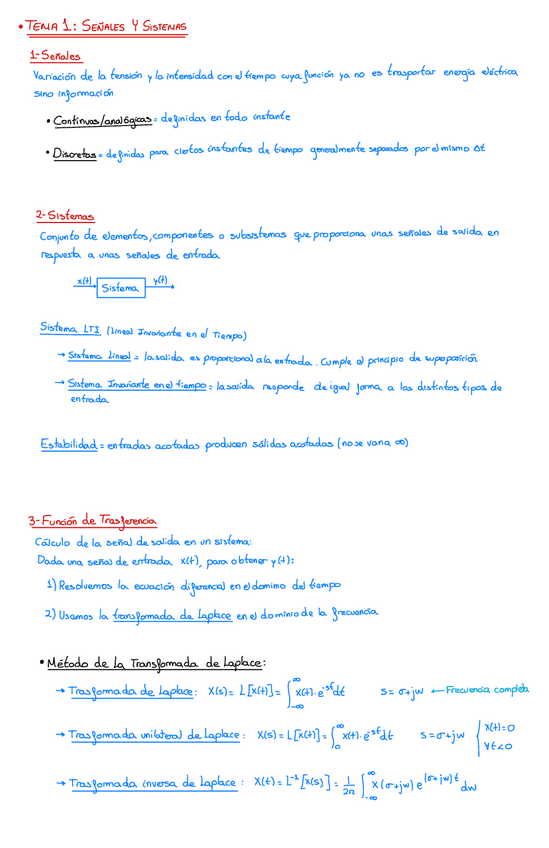 • TEMA 1: SEÑALES Y SISTEMAS
1- Señales
Variación de la tensión y la intensidad con el tiempo cuya función ya no es trasportar energía eléctrica
sino información
• Continuas/analógicas = definidas en todo instante
• Discretas = definidas para ciertos instantes de tiempo generalmente separados por el mismo Δt
2- Sistemas
Conjunto de elementos, componentes o subsistemas que proporciona unas señales de salida en
respuesta a unas señales de entrada
x(t) Sistema y(t)
Sistema LTI (Lineal Invariante en el Tiempo)
→ Sistema Lineal = la salida es proporcional a la entrada. Cumple el principio de superposición
→ Sistema Invariante en el tiempo = la salida responde de igual forma a los distintos tipos de
entrada
Estabilidad = entradas acotadas producen sálidas acotadas (no se van a ∞)
3- Función de Trasferencia
Cálculo de la señal de salida en un sistema:
Dada una señal de entrada x(t), para obtener y(t):
1) Resolvemos la ecuación diferencial en el dominio del tiempo
2) Usamos la transformada de Laplace en el dominio de la frecuencia
• Método de la Transformada de Laplace:
→ Trasformada de Laplace: X(s) = L[x(t)] = ∫_{-∞}^{∞} x(t)·e^{-st}dt s = σ+jw ← Frecuencia completa
→ Trasformada unilateral de Laplace: X(s) = L[x(t)] = ∫_0^∞ x(t)·e^{-st}dt s = σ+jw { x(t)=0
∀t<0
→ Trasformada inversa de Laplace: X(t) = L^{-1}[X(s)] = 1/2π ∫_{-∞}^{∞} X(σ+jw) e^{(σ+jw)t} dw